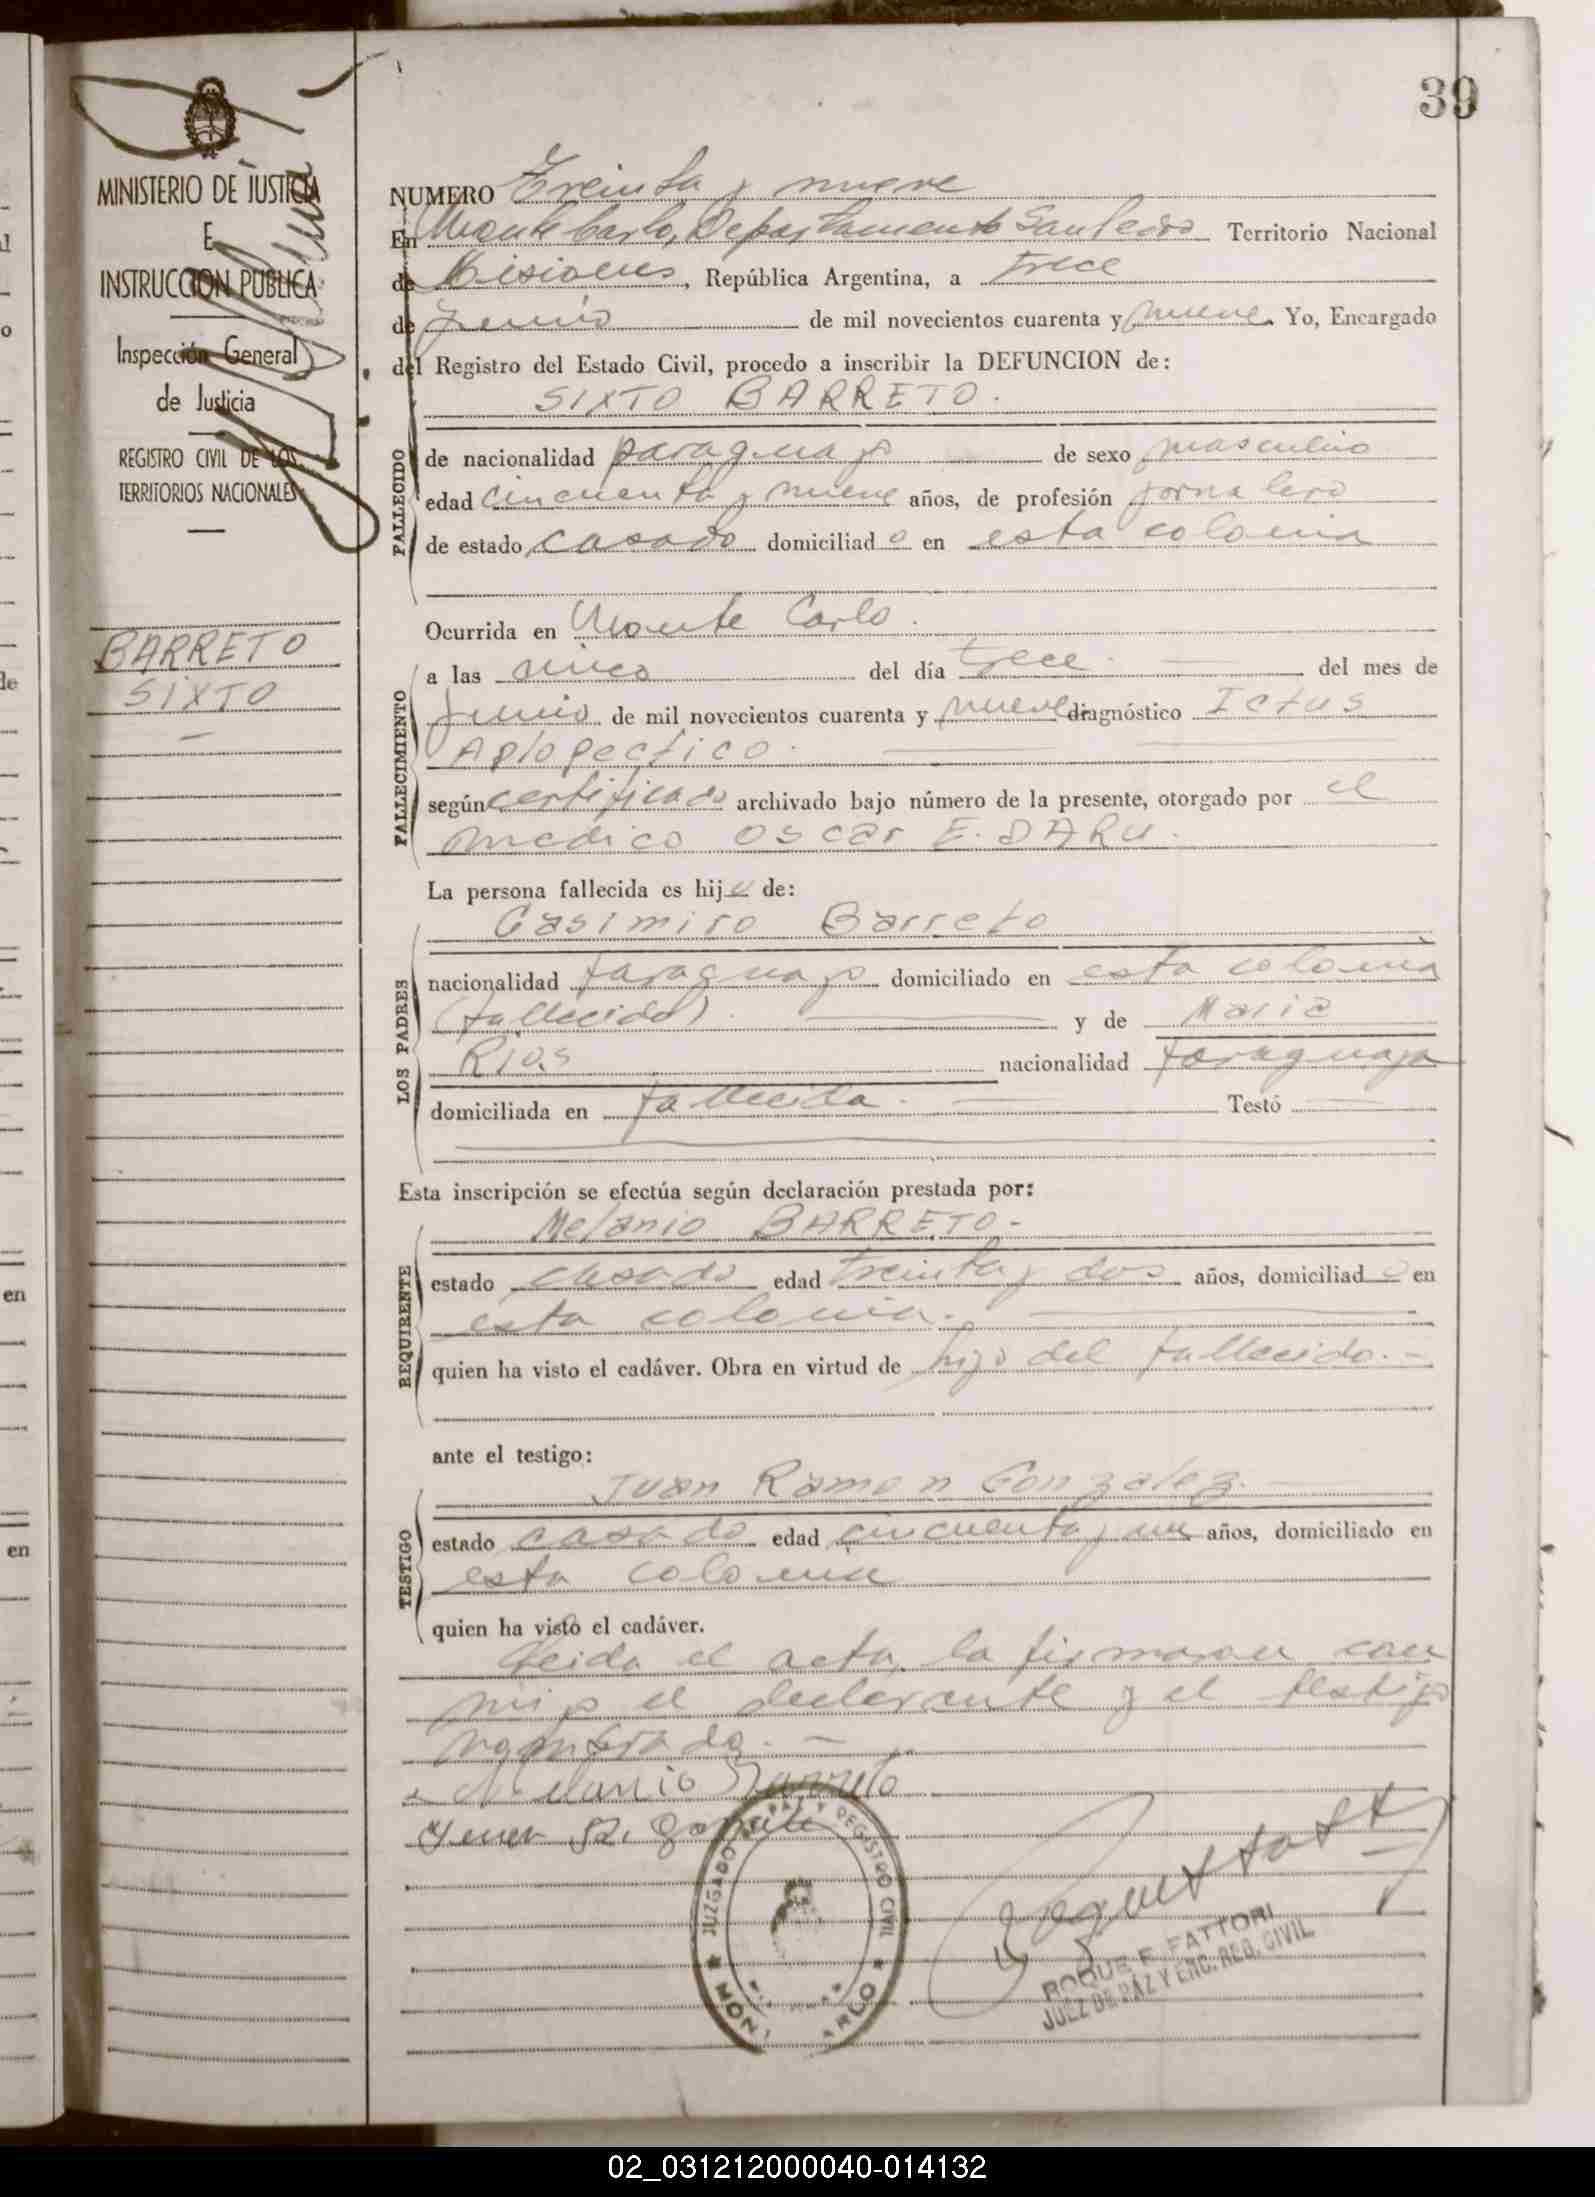 39
MINISTERIO DE JUSTICIA
E
INSTRUCCION PUBLICA
Inspección General
de Justicia
REGISTRO CIVIL DE LOS
TERRITORIOS NACIONALES
BARRETO
SIXTO
NUMERO Treinta y nueve
En Monte Carlo, Departamento San Pedro Territorio Nacional
de Misiones, República Argentina, a trece
de junio de mil novecientos cuarenta y nueve. Yo, Encargado
del Registro del Estado Civil, procedo a inscribir la DEFUNCION de:
SIXTO BARRETO.
FALLECIDO
de nacionalidad paraguayo de sexo masculino
edad cincuenta y nueve años, de profesión jornalero
de estado casado domiciliado en esta colonia
Ocurrida en Monte Carlo.
FALLECIMIENTO
a las cinco del día trece. del mes de
junio de mil novecientos cuarenta y nueve diagnóstico Ictus
Aplopectico.
según certificado archivado bajo número de la presente, otorgado por el
medico Oscar E. DARU.
La persona fallecida es hijo de:
LOS PADRES
Casimiro Barreto
nacionalidad paraguayo domiciliado en esta colonia
(fallecido) y de Maria
Rios nacionalidad paraguaya
domiciliada en fallecida. Testó
Esta inscripción se efectúa según declaración prestada por:
REQUIRENTE
Melanio BARRETO-
estado casado edad treinta y dos años, domiciliado en
esta colonia.
quien ha visto el cadáver. Obra en virtud de hijo del fallecido.-
ante el testigo:
TESTIGO
Juan Ramon Gonzalez.
estado casado edad cincuenta y un años, domiciliado en
esta colonia
quien ha visto el cadáver.
Leida el acta, la firmaron con
migo el declarante y el testigo
nombrado.-
Melanio Barreto
Juan R. Gonzale
JUZGADO DE PAZ Y REGISTRO CIVIL
MONT ARLO
ROQUE F. FATTORI
JUEZ DE PAZ Y ENC. REG. CIVIL
02_031212000040-014132